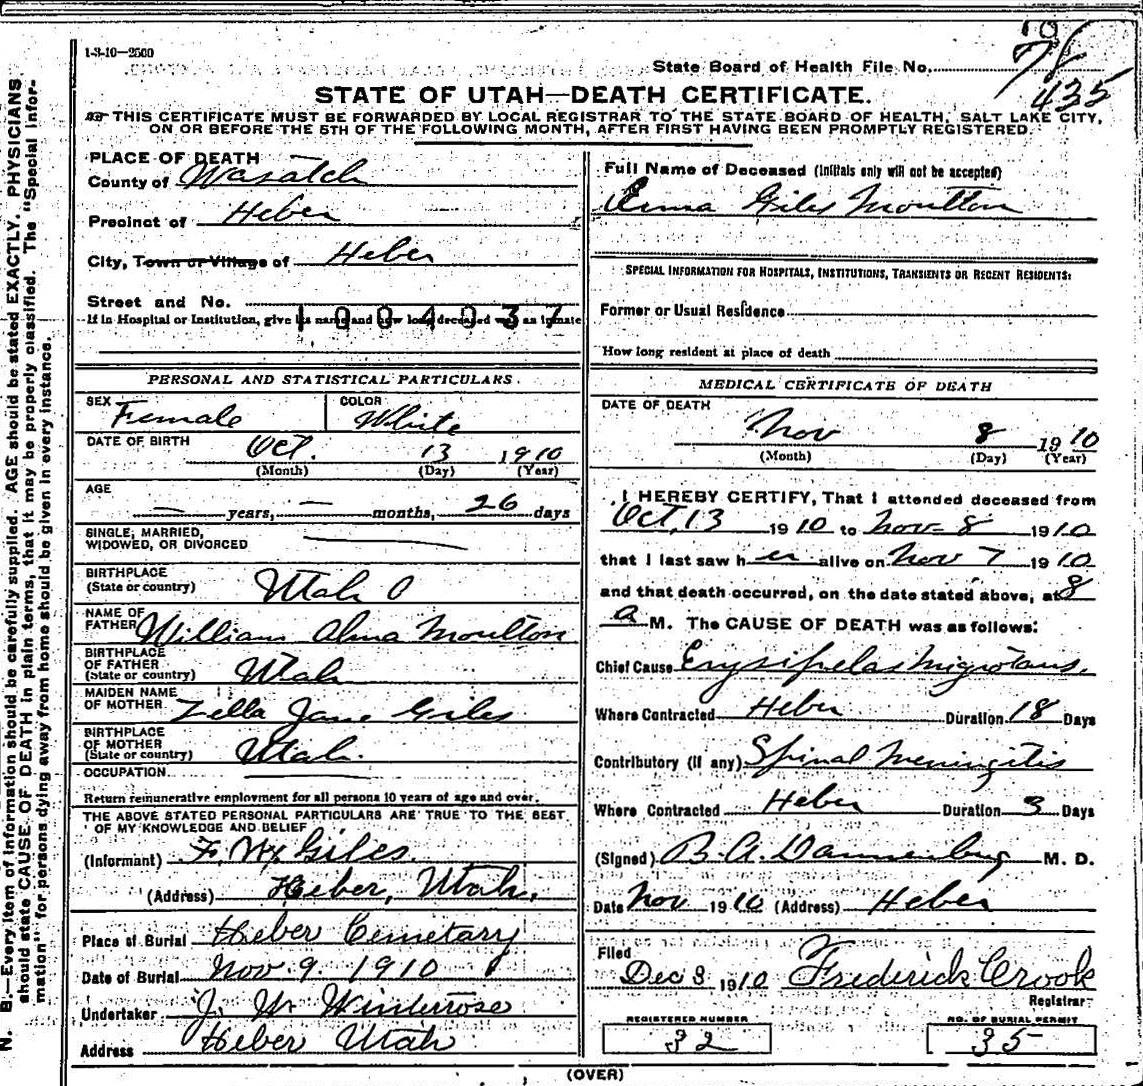 1-3-10—2500
State Board of Health File No. 78
435
STATE OF UTAH—DEATH CERTIFICATE.
THIS CERTIFICATE MUST BE FORWARDED BY LOCAL REGISTRAR TO THE STATE BOARD OF HEALTH, SALT LAKE CITY,
ON OR BEFORE THE 5TH OF THE FOLLOWING MONTH, AFTER FIRST HAVING BEEN PROMPTLY REGISTERED.
N. B.—Every item of information should be carefully supplied. AGE should be stated EXACTLY. PHYSICIANS
should state CAUSE OF DEATH in plain terms, that it may be properly classified. The "Special Infor-
mation" for persons dying away from home should be given in every instance.
PLACE OF DEATH
County of Wasatch
Precinct of Heber
City, Town or Village of Heber
Street and No.
If in Hospital or Institution, give its name and how long deceased was an inmate
1004037
PERSONAL AND STATISTICAL PARTICULARS.
SEX Female COLOR White
DATE OF BIRTH Oct. 13 1910
(Month) (Day) (Year)
AGE — years, — months, 26 days
SINGLE, MARRIED,
WIDOWED, OR DIVORCED
BIRTHPLACE
(State or country) Utah
NAME OF
FATHER William Alma Moulton
BIRTHPLACE
OF FATHER
(State or country) Utah
MAIDEN NAME
OF MOTHER Zella Jane Giles
BIRTHPLACE
OF MOTHER
(State or country) Utah.
OCCUPATION
Return remunerative employment for all persons 10 years of age and over.
THE ABOVE STATED PERSONAL PARTICULARS ARE TRUE TO THE BEST
OF MY KNOWLEDGE AND BELIEF
(Informant) F. W. Giles.
(Address) Heber, Utah.
Place of Burial Heber Cemetary
Date of Burial Nov. 9. 1910
Undertaker J. W. Winterose
Address Heber Utah
Full Name of Deceased (Initials only will not be accepted)
Erma Giles Moulton
SPECIAL INFORMATION FOR HOSPITALS, INSTITUTIONS, TRANSIENTS OR RECENT RESIDENTS:
Former or Usual Residence
How long resident at place of death
MEDICAL CERTIFICATE OF DEATH
DATE OF DEATH
Nov 8 1910
(Month) (Day) (Year)
I HEREBY CERTIFY, That I attended deceased from
Oct, 13 1910 to Nov- 8 1910
that I last saw her alive on Nov 7 1910
and that death occurred, on the date stated above, at 8
a M. The CAUSE OF DEATH was as follows:
Chief Cause Erysipelas Migrotans.
Where Contracted Heber Duration 18 Days
Contributory (if any) Spinal Meningitis
Where Contracted Heber Duration 3 Days
(Signed) B. A. Dannenburg M. D.
Date Nov 1910 (Address) Heber
Filed
Dec 3 1910 Frederick Crook
Registrar
REGISTERED NUMBER
32
NO. OF BURIAL PERMIT
35
(OVER)